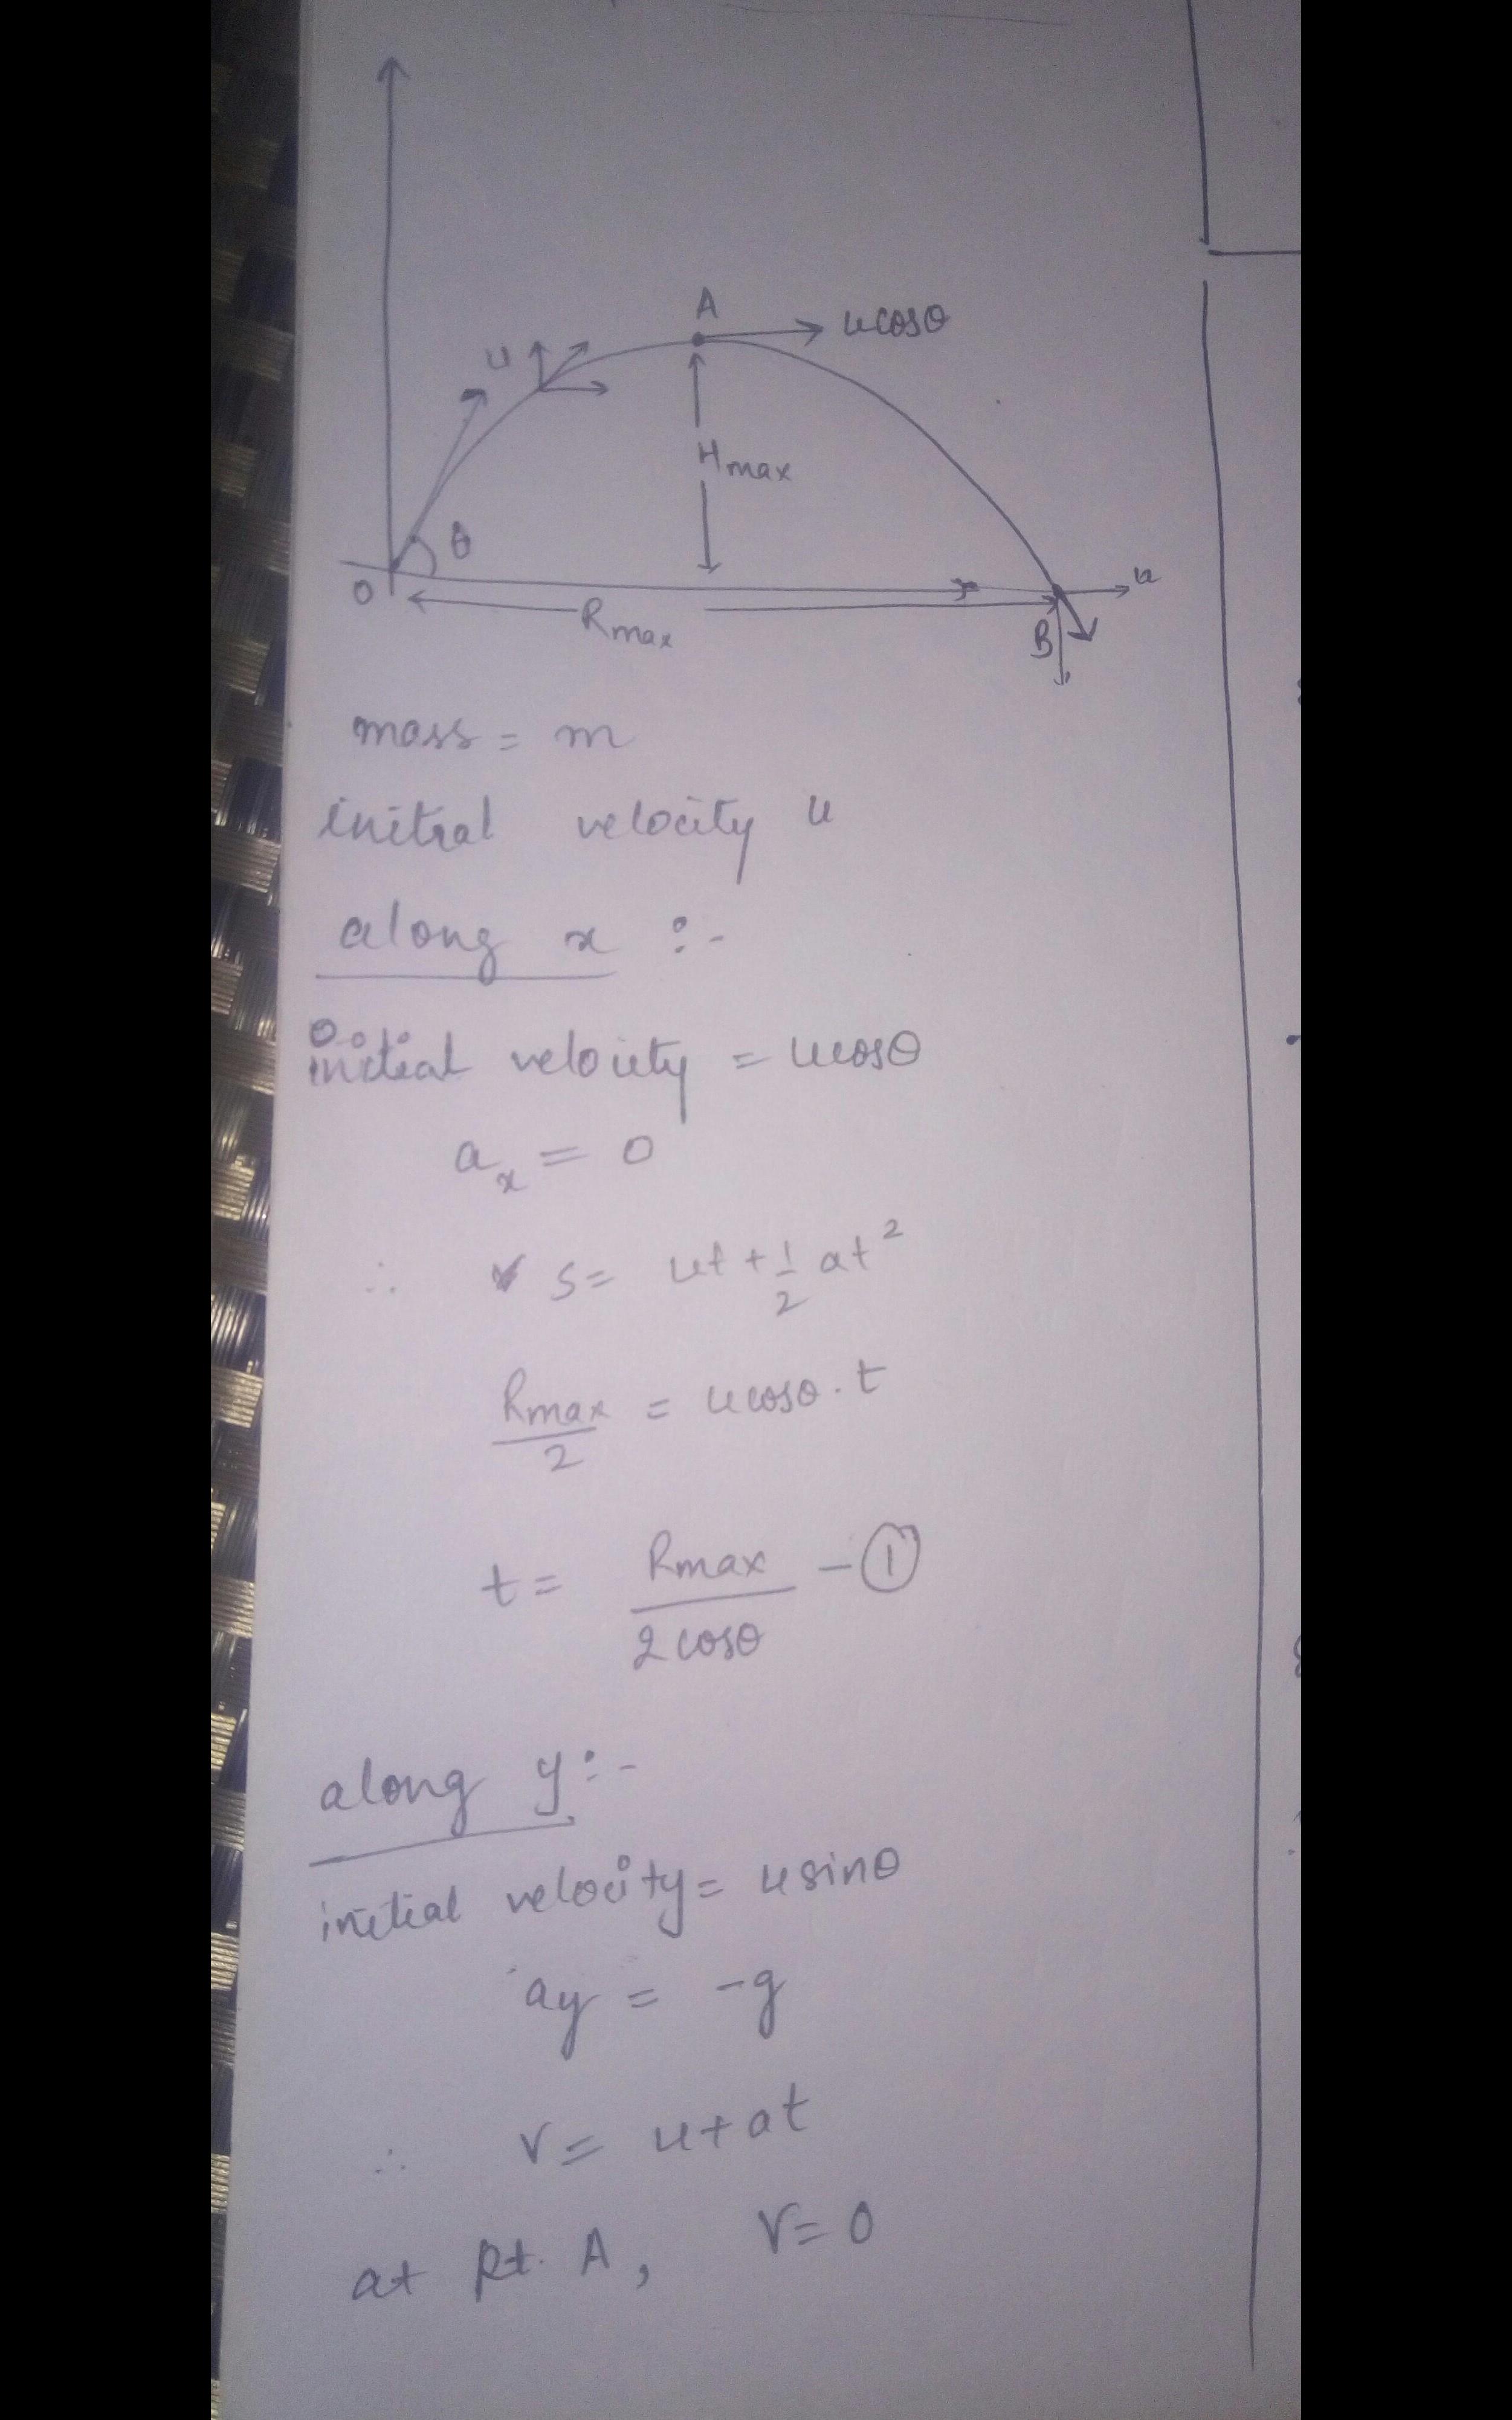 A
ucosθ
u
Hmax
θ
O
Rmax
B
mass = m
initial velocity u
along x :-
initial velocity = ucosθ
a_x = 0
∴ s = ut + 1/2 at²
Rmax/2 = ucosθ . t
t = Rmax/2cosθ - ①
along y :-
initial velocity = usinθ
ay = -g
∴ v = u+at
at pt. A, v = 0